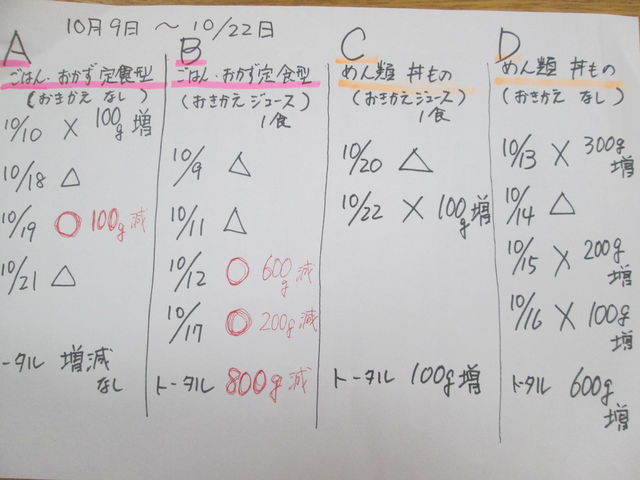 10月9日 ～ 10/22日
A
ごはん・おかず定食型
(おきかえ なし)
10/10 × 100g増
10/18 △
10/19 ○ 100g減
10/21 △
トータル 増減
なし
B
ごはん・おかず定食型
(おきかえジュース)
1食
10/9 △
10/11 △
10/12 ○ 600g減
10/17 ○ 200g減
トータル 800g減
C
めん類 丼もの
(おきかえジュース)
1食
10/20 △
10/22 × 100g増
トータル 100g増
D
めん類 丼もの
(おきかえ なし)
10/13 × 300g増
10/14 △
10/15 × 200g増
10/16 × 100g増
トータル 600g
増